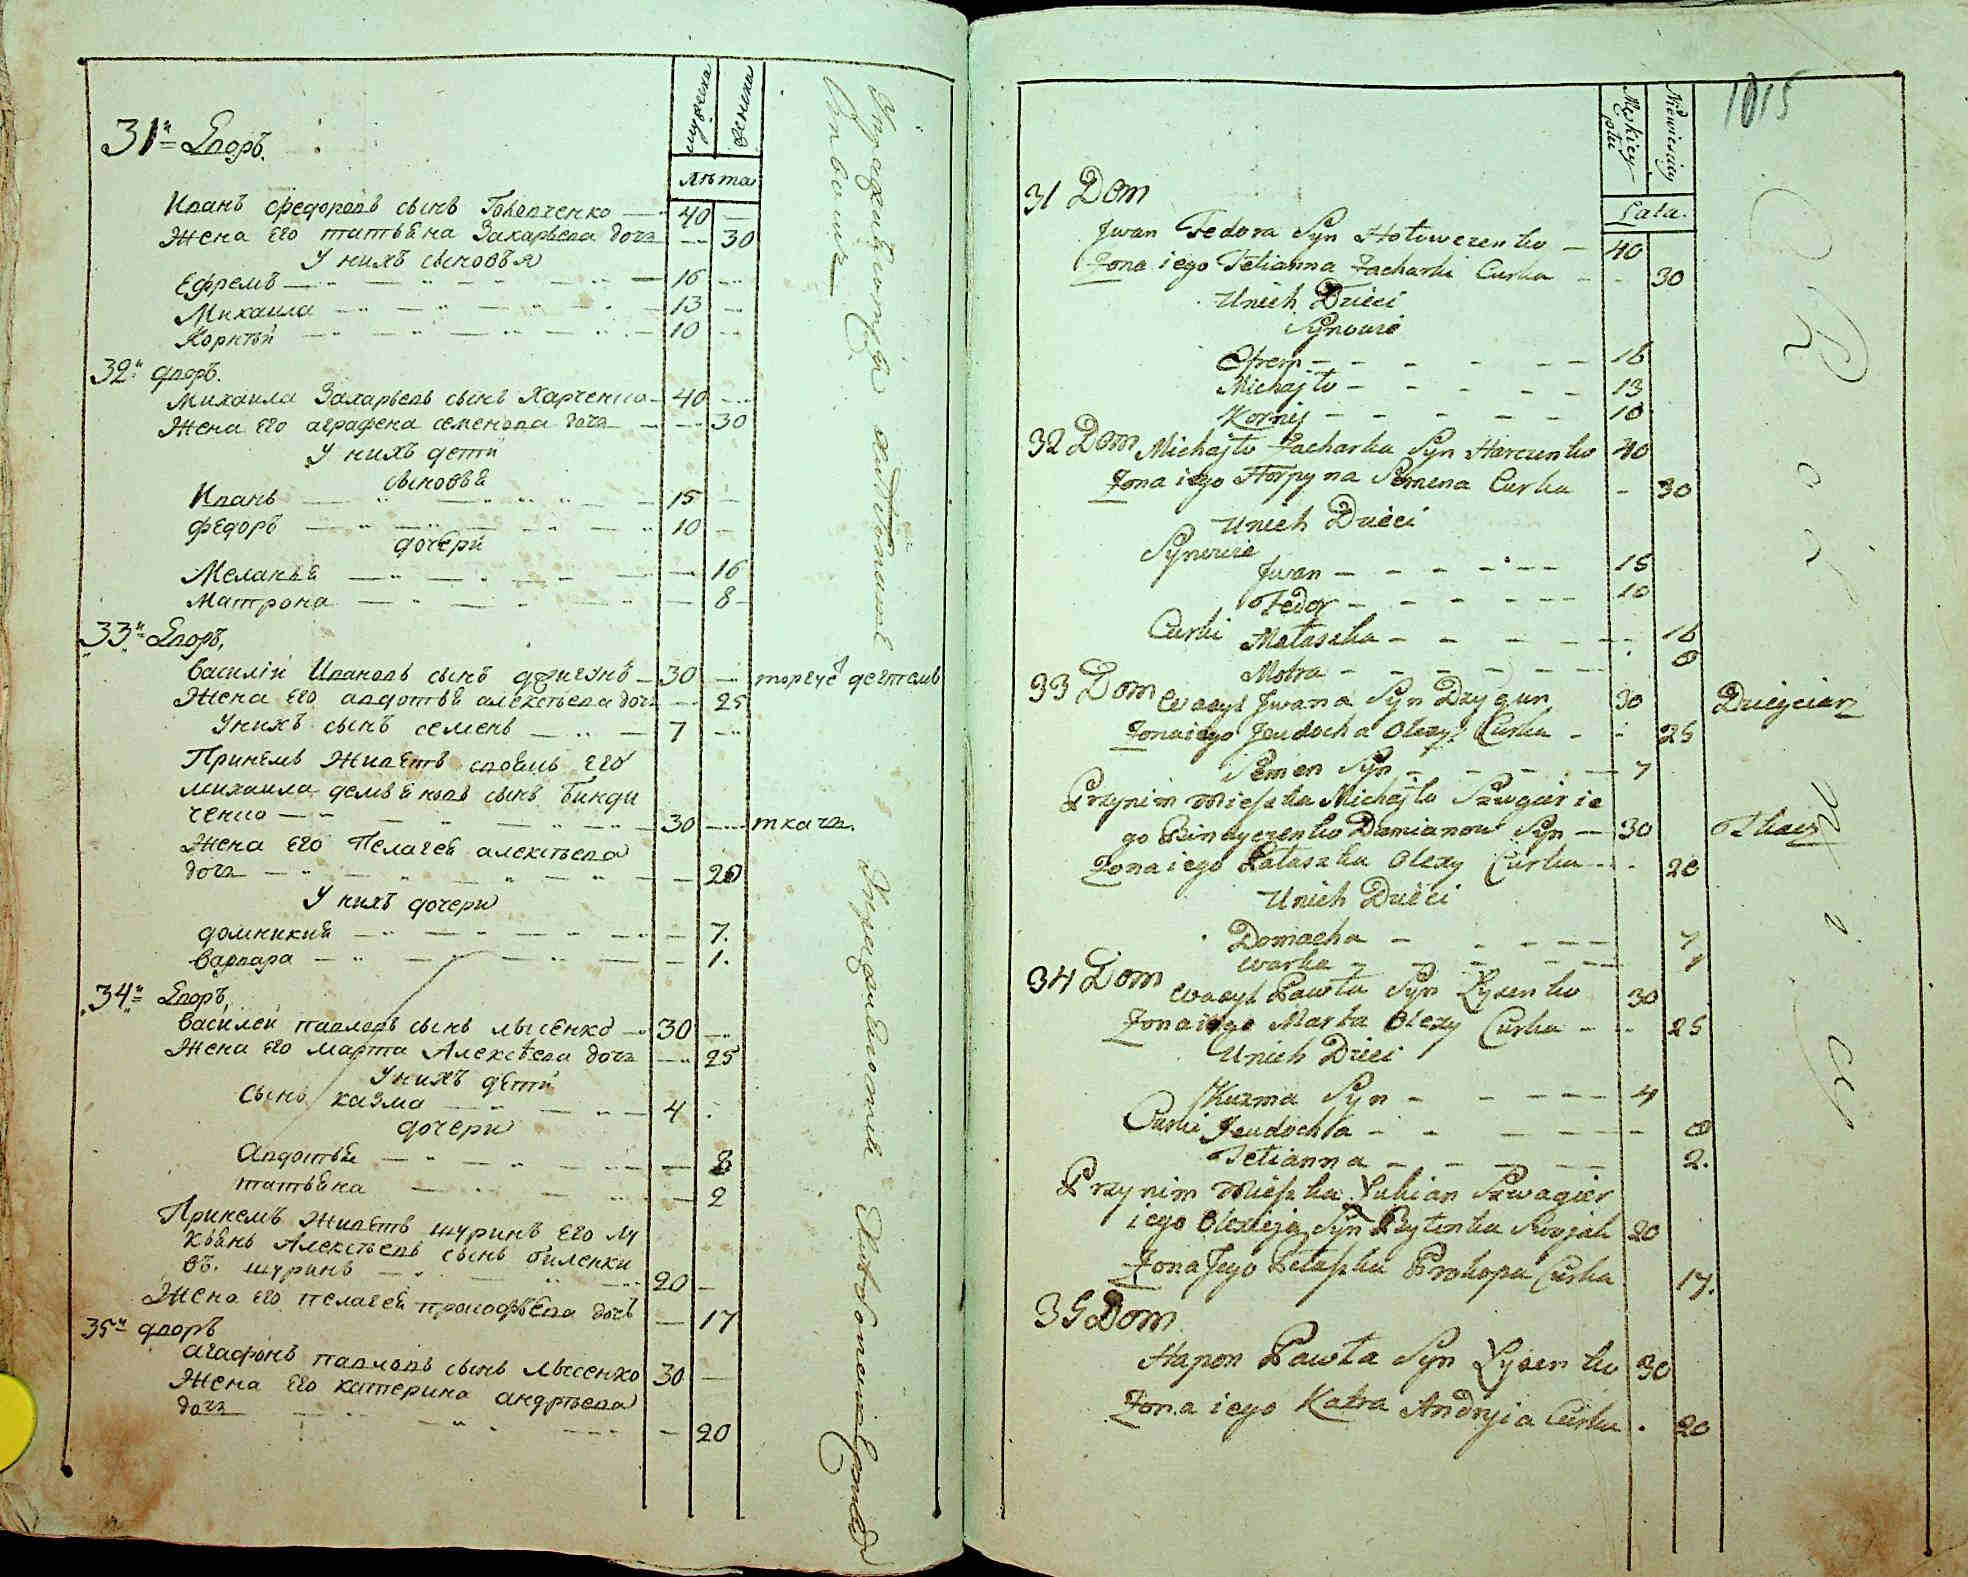 мужеска
женска
лѣта
31й Дворъ.
Иванъ федоровъ сынъ Головченко 40
Жена его татьяна Захарьева дочь 30
У нихъ сыновья
Ефремъ 16
Михаила 13
Корнѣй 10
32й дворъ.
Михаила Захарьевъ сынъ Харченко 40
Жена его аграфена семенова дочь 30
У нихъ дети
сыновья
Иванъ 15
федоръ 10
дочери
Меланья 16
Матрона 8
33й Дворъ,
Василій Ивановъ сынъ дригунъ 30 торгуе дегтемъ
Жена его авдотья алексѣева дочь 25
У нихъ сынъ семенъ 7
Принемъ Живетъ своякъ его
михаила демьяновъ сынъ Бинди
ченко 30 ткачь.
Жена его Пелагея алексѣева
дочь 20
У нихъ дочери
домникия 7.
Варвара 1.
34й Дворъ,
Василей павловъ сынъ лысенко 30
Жена его марта Алексѣева дочь 25
У нихъ дети
Сынъ казма 4
дочери
Авдотья 8
татьяна 2
Принемъ Живетъ шуринъ его лу
кьянъ Алексѣевъ сынъ биленки
въ. шуринъ 20
Жена его пелагея прокофьева дочь 17
35й дворъ
агафонъ павловъ сынъ лысенко 30
Жена его катерина андрѣева
дочь 20
1015
Męskiey płci
Niewieściey
Lata.
31 Dom
Jwan Fedora Syn Hołowczenko 40
Żona iego Tetianna Zacharki Curka 30
Unich Dzieci
Synowie
Efrem 16
Michajło 13
Kornij 10
32 Dom Michajło Zacharka Syn Harczenko 40
Żona iego Horpyna Semena Curka 30
Unich Dzieci
Synowie
Jwan 15
Fedor 10
Curki Małaszka 16
Motra 8
33 Dom Wasyl Jwana Syn Dzygun 30 Dziegciarz
Żona iego Jeudocha Olexy Curka 25
Semen Syn 7
Przynim Mieszka Michajło Szwagier ie
go Bindyczenko Damianow Syn 30 Tkacz
Żona iego Pałaszka Olexy Curka 20
Unich Dzieci
Domacha 7
Warka 1
34 Dom Wasyl Pawła Syn Łysenko 30
Żona iego Marta Olexy Curka 25
Unich Dzieci
Kuzma Syn 4
Curki Jeudocha 8
Tetianna 2.
Przynim Mieszka Łukian Szwagier
iego Olexieja Syn Byłenka Swojak 20
Żona Jego Pałaszka Prokopa Curka 17.
35 Dom
Hapon Pawła Syn Łysenko 30
Żona iego Katra Andryia Curka 20